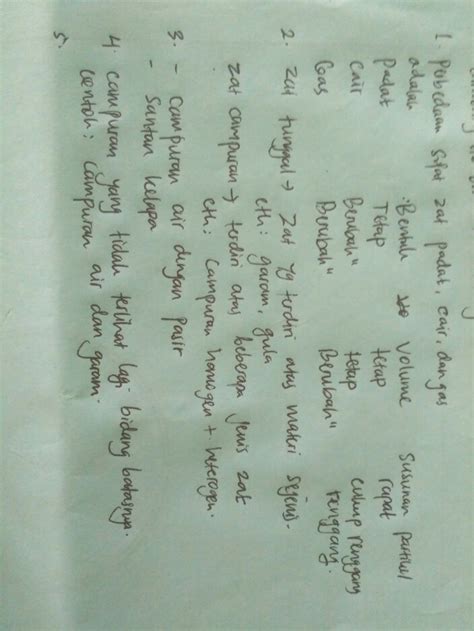 1. Perbedaan sifat zat padat, cair, dan gas
adalah : Bentuk Volume Susunan partikel
Padat Tetap tetap rapat
Cair Berubah" tetap cukup renggang
Gas Berubah" Berubah" renggang.
2. zat tunggal → zat yg terdiri atas materi sejenis.
cth : garam, gula
zat campuran → terdiri atas beberapa jenis zat
cth : campuran homogen + heterogen.
3. - campuran air dengan pasir
- Santan kelapa
4. campuran yang tidak terlihat lagi bidang batasnya.
contoh : campuran air dan garam.
5.